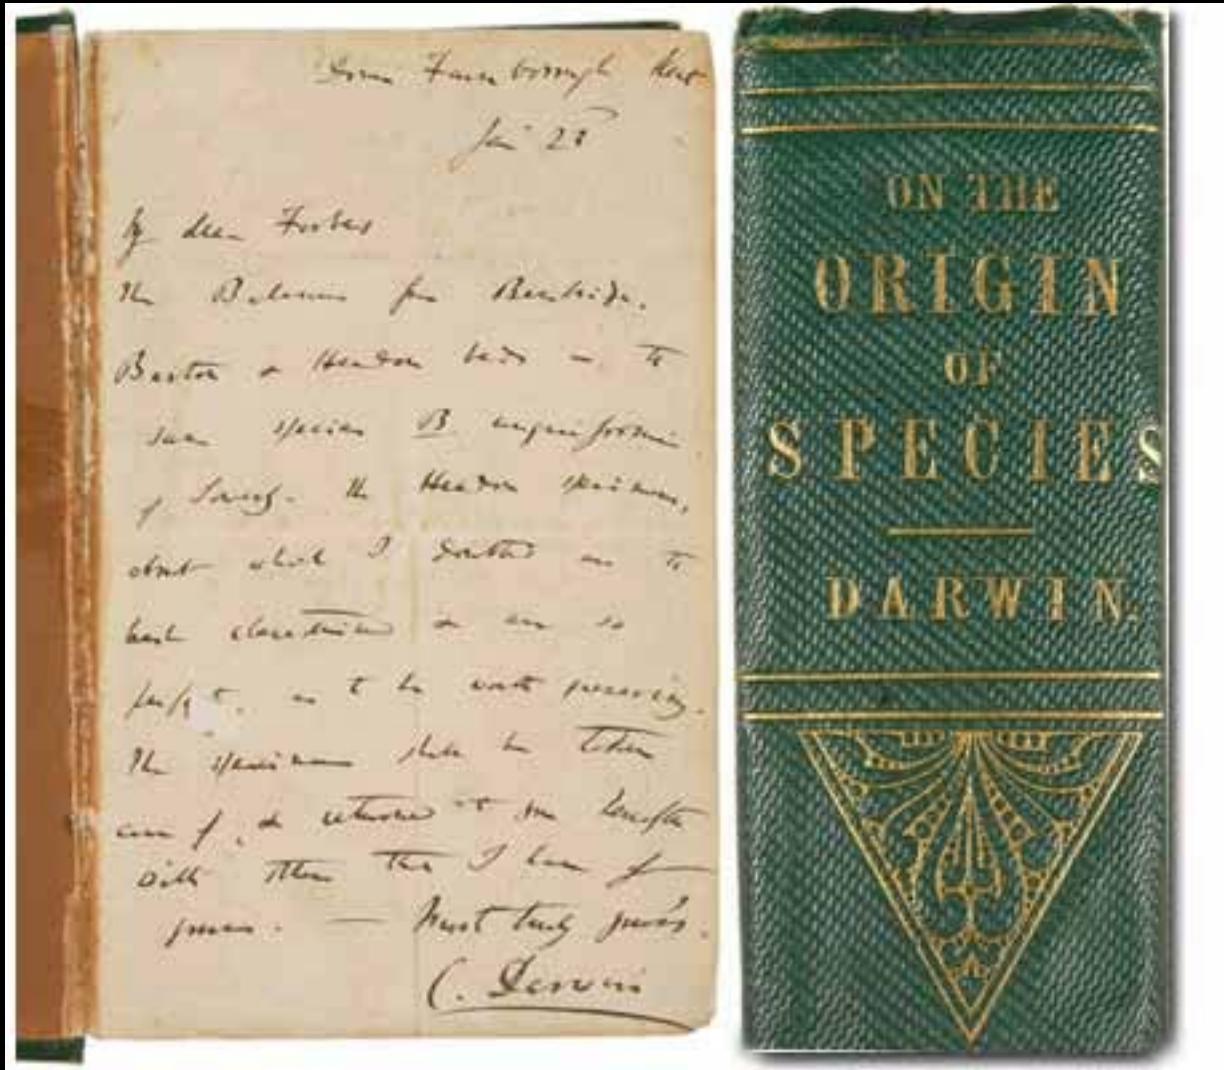 Down Farnborough Kent
Jan 28
My dear Forbes
The Balanus from Bembridge,
Barton & Headon beds is the
same species B unguiformis
of Sowerby. The Headon specimens,
about which I doubted are the
best characterised & are so
perfect, as to be worth preserving.
The specimens shall be taken
care of, & returned at some length
with others that I have from
yours. — Most truly yours.
C. Darwin
ON THE
ORIGIN
OF
SPECIES
DARWIN.